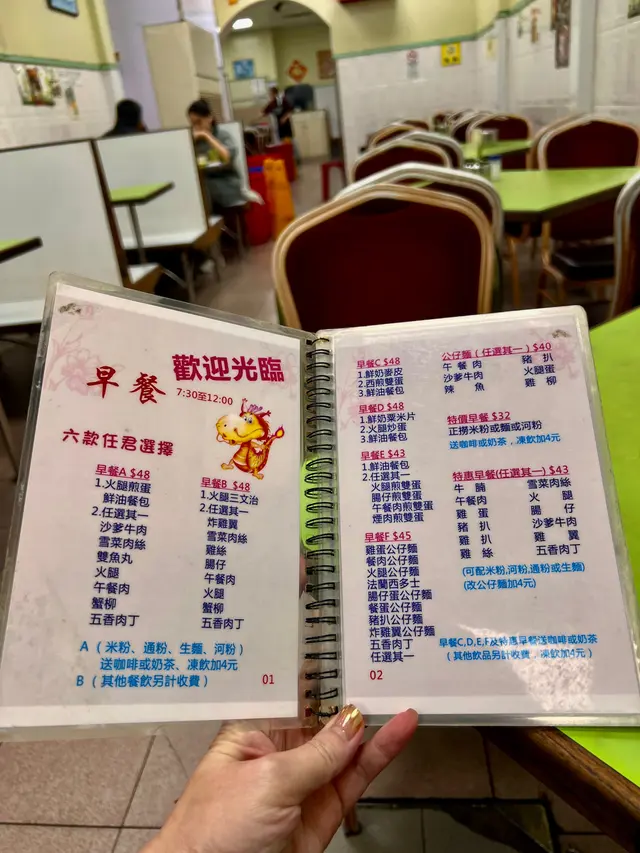 歡迎光臨
早餐
7:30至12:00
六款任君選擇
早餐A $48
1.火腿煎蛋
鮮油餐包
2.任選其一
沙爹牛肉
雪菜肉絲
雙魚丸
火腿
午餐肉
蟹柳
五香肉丁
早餐B $48
1.火腿三文治
2.任選其一
炸雞翼
雪菜肉絲
雞絲
腸仔
午餐肉
火腿
蟹柳
五香肉丁
A（米粉、通粉、生麵、河粉）
送咖啡或奶茶、凍飲加4元
B（其他餐飲另計收費）
01
早餐C $48
1.鮮奶麥皮
2.西煎雙蛋
3.鮮油餐包
早餐D $48
1.鮮奶粟米片
2.火腿炒蛋
3.鮮油餐包
早餐E $43
1.鮮油餐包
2.任選其一
火腿煎雙蛋
腸仔煎雙蛋
午餐肉煎雙蛋
煙肉煎雙蛋
早餐F $45
雞蛋公仔麵
餐肉公仔麵
火腿公仔麵
法蘭西多士
腸仔蛋公仔麵
餐蛋公仔麵
豬扒公仔麵
炸雞翼公仔麵
五香肉丁
任選其一
02
公仔麵（任選其一）$40
午餐肉 豬扒
沙爹牛肉 火腿蛋
辣魚 雞柳
特價早餐 $32
正撈米粉或麵或河粉
送咖啡或奶茶，凍飲加4元
特惠早餐(任選其一) $43
牛腩 雪菜肉絲
午餐肉 火腿
雞蛋 腸仔
豬扒 沙爹牛肉
雞扒 雞翼
雞絲 五香肉丁
(可配米粉,河粉,通粉或生麵)
(改公仔麵加4元)
早餐C,D,E,F及特惠早餐送咖啡或奶茶
（其他飲品另計收費，凍飲加4元）